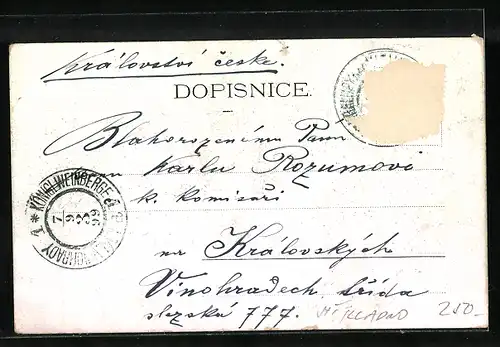 Království české.
DOPISNICE.
Blahorozenému Panu
Karlu Rozumovi
k. komisaři
na Královských
Vinohradech třída
slezská 777.
250.-
* KÖNIGL. WEINBERGE 1
VINOHRADY 1
7
9
99